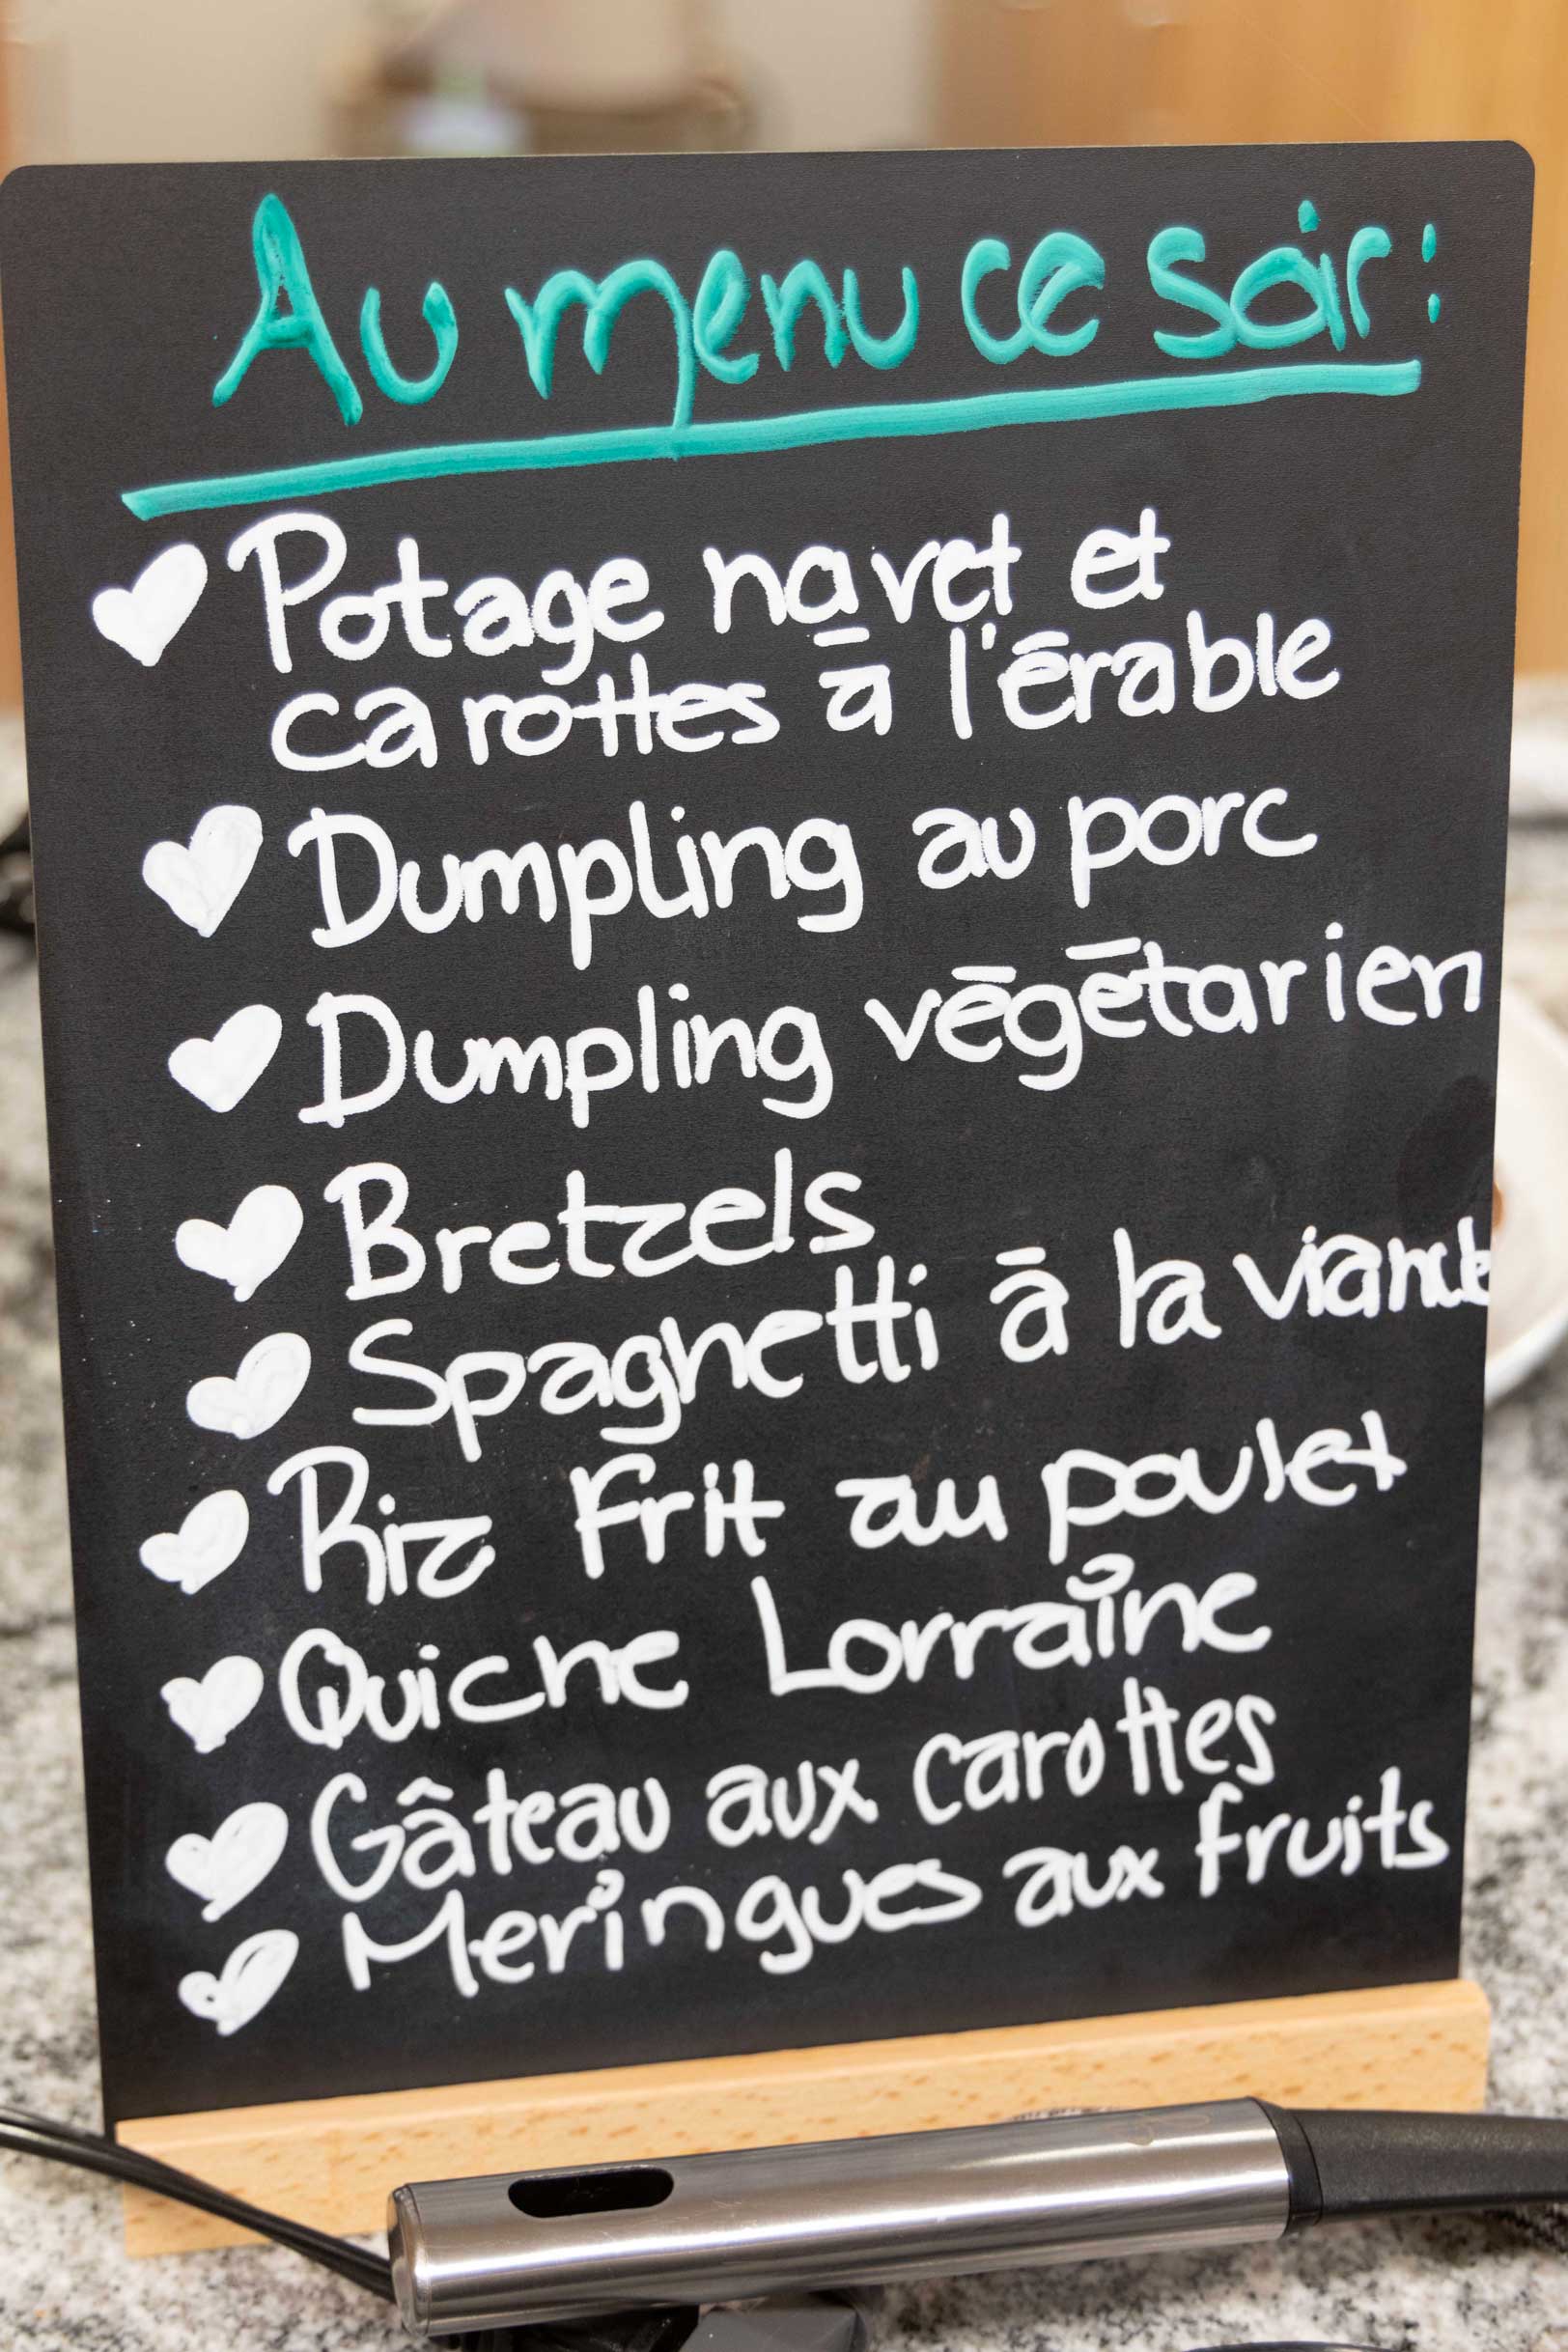 Au menu ce soir:
Potage navet et
carottes à l'érable
Dumpling au porc
Dumpling végétarien
Bretzels
Spaghetti à la viande
Riz Frit au poulet
Quiche Lorraine
Gâteau aux carottes
Meringues aux fruits